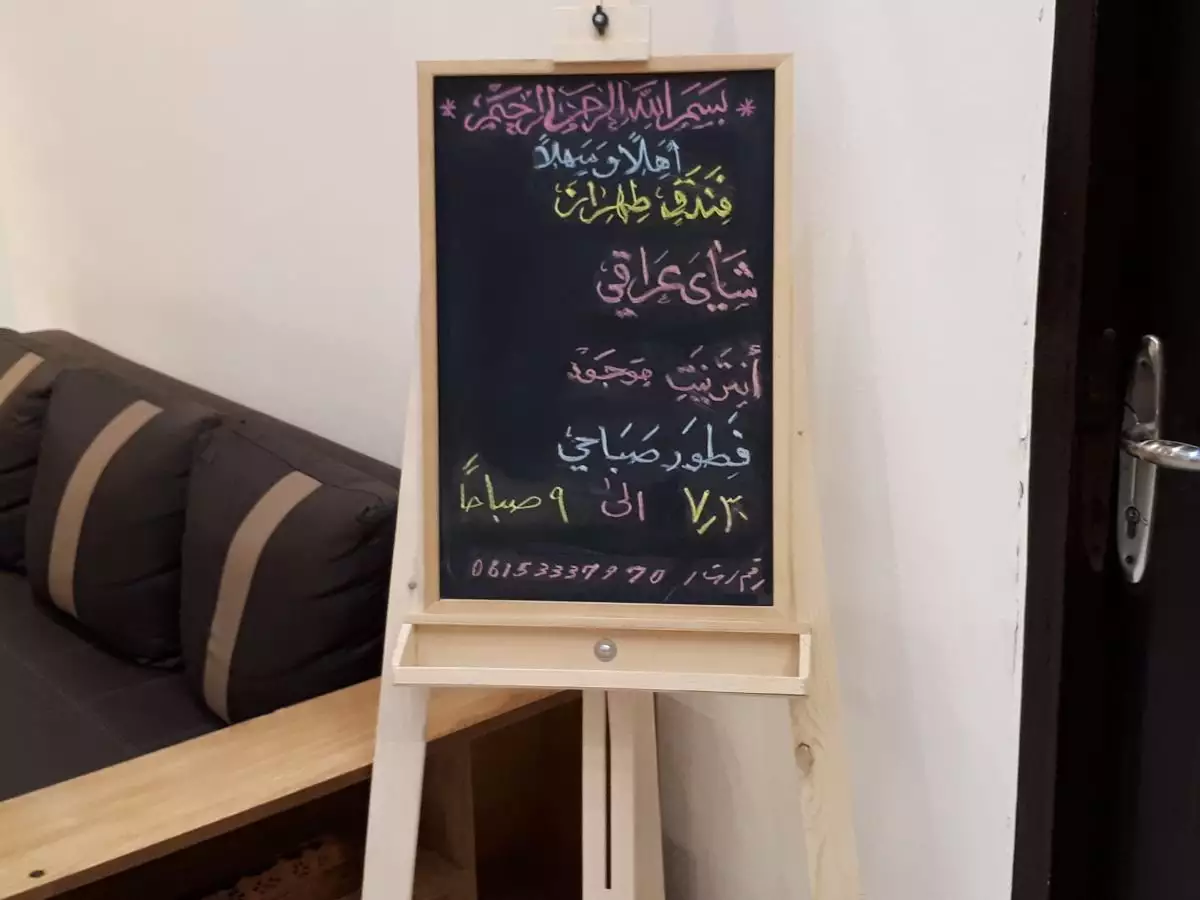 * بسم الله الرحمن الرحيم *
أهلاً وسهلاً
فندق طهران
شاي عراقي
أنترنيت موجود
فطور صباحي
٧٫٣٠ الى ٩ صباحاً
رقم / ت / 06153337970